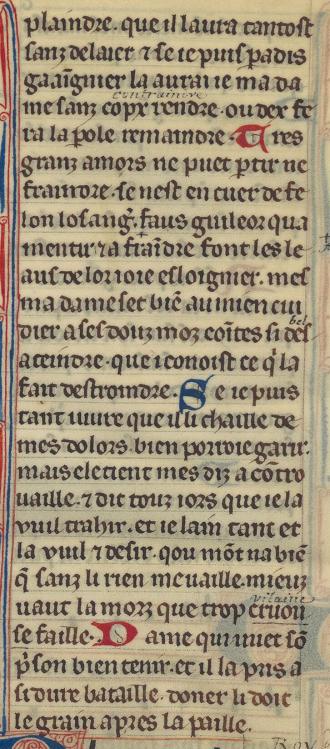 plaindre. que il laura tantost
sanz delaier ⁊ se ie puis padis
gaaignier la aurai ie ma da
contraindre
me sanz copx rendre. ou dex fe
ra la pole remaindre. Tres
granz amors ne puet ptir ne
fraindre. se nest en cuer de fe
lon losang̃. faus guileor qua
mentir ⁊ a fraīdre font les le
aus de lor ioie esloignier. mes
ma dame set biē au mien cui
bel
dier a ses douz moz cōtes si des
ateindre. que i conoist ce q̃ la
fait destroindre. Se ie puis
tant uiure que il li chaille de
mes dolors. bien porroie garir.
mais ele tient mes diz a cōtro
uaille. ⁊ dit touz iors que ie la
vuil trahir. et ie laim tant et
la vuil ⁊ desir. qou mōt na biē
q̃ sanz li rien me vaille. mieuz
vilaine
vaut la morz que trop
se faille. Dame qui uuet sō
p̃son bien tenir. et il la pris a
si dure bataille. doner li doit
le grain apres la paille.
Roy